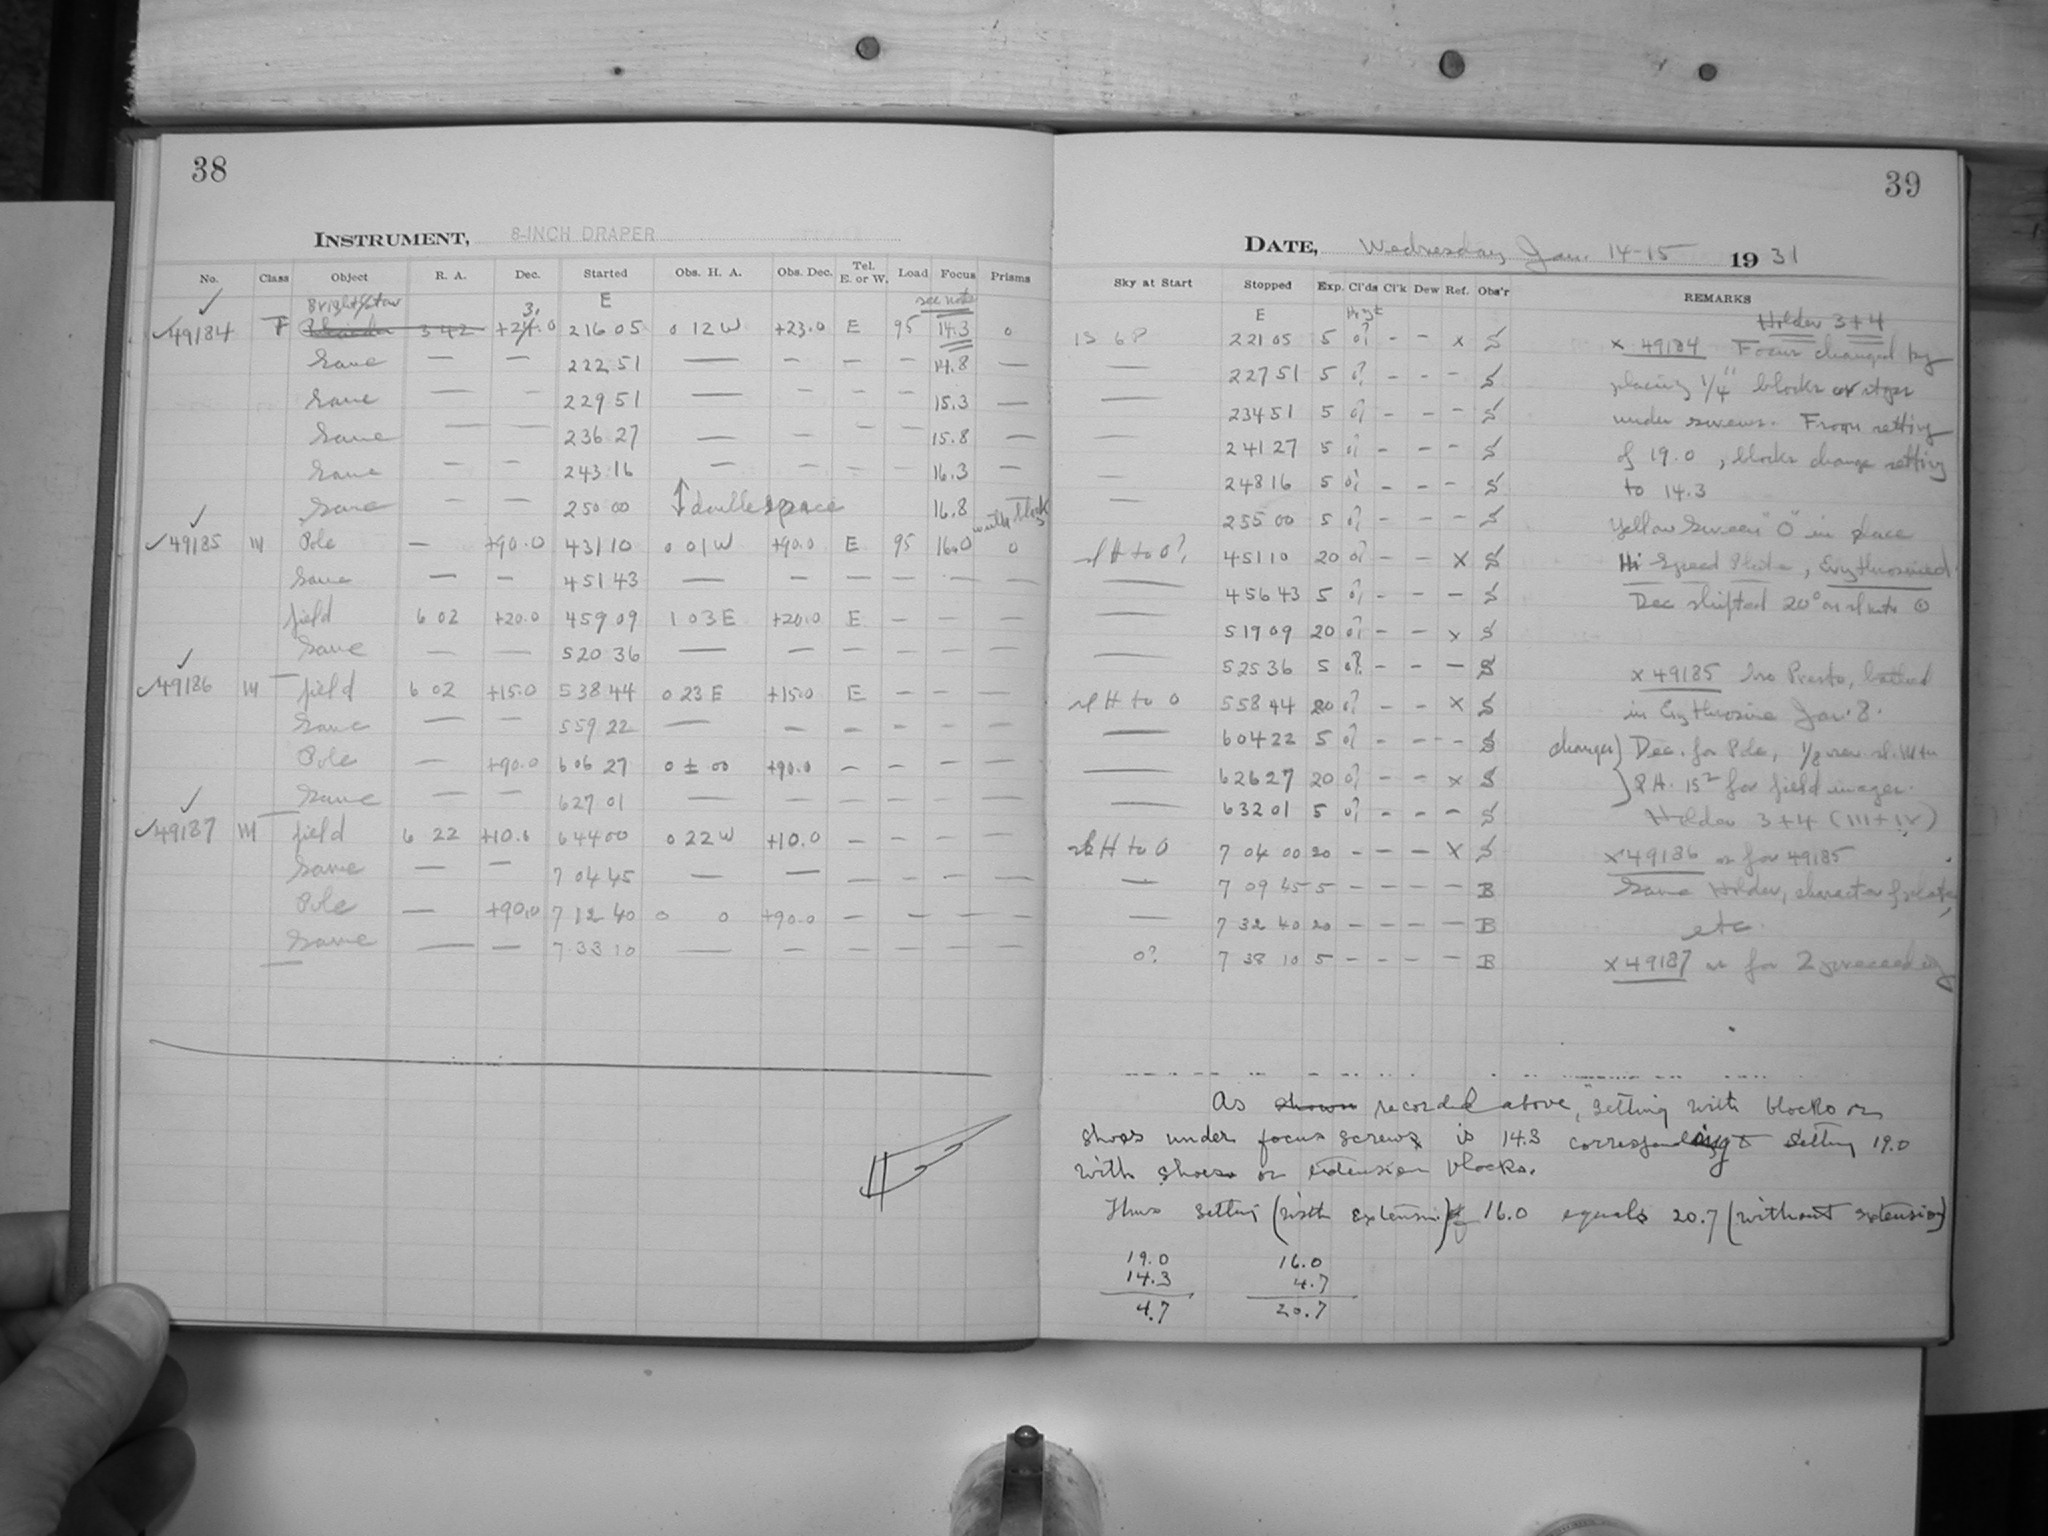 38
INSTRUMENT, 8-INCH DRAPER
No. Class Object R. A. Dec. Started Obs. H. A. Obs. Dec. Tel. E. or W. Load Focus Prisms
Bright star 3. E see note
49184 F 3 42 +24.0 2 16 05 0 12 W +23.0 E 95 14.3 0
Same — — 2 22 51 — - - - - 14.8 —
Same — — 2 29 51 — - - - - 15.3 —
Same — — 2 36 27 — - - - - 15.8 —
Same — — 2 43 16 — - - - - 16.3 —
Same — — 2 50 00 ↕ double space 16.8
49185 III Pole — +90.0 4 31 10 0 01 W +90.0 E 95 16.0 0
Same — — 4 51 43 — — — — — —
field 6 02 +20.0 4 59 09 1 03 E +20.0 E — — —
Same — — 5 20 36 — — — — — —
49186 III field 6 02 +15.0 5 38 44 0 23 E +15.0 E — — —
Same — — 5 59 22 — — — — — —
Pole — +90.0 6 06 27 0 ± 00 +90.0 — — — —
Same — — 6 27 01 — — — — — —
49187 III field 6 22 +10.0 6 44 00 0 22 W +10.0 — — — —
Same — — 7 04 45 — — — — — —
Pole — +90.0 7 12 40 0 0 +90.0 — — — —
Same — — 7 33 10 — — — — — —
39
DATE, Wednesday Jan. 14-15 1931
Sky at Start Stopped Exp. Cl'ds Cl'k Dew Ref. Obs'r REMARKS
E Holder 3+4
2 21 05 5 0? - - x S x 49184 Focus changed by
— 2 27 51 5 0? - - - S placing 1/4" blocks or stops
— 2 34 51 5 0? - - - S under screws. From setting
— 2 41 27 5 0? - - - S of 19.0, blocks change setting
— 2 48 16 5 0? - - - S to 14.3
— 2 55 00 5 0? - - - S Yellow Screen "0" in place
sl H to 0? 4 51 10 20 0? - - x S Hi Speed Plate, Erythrosined
— 4 56 43 5 0? - - - S Dec shifted 20°
— 5 19 09 20 0? - - x S
— 5 25 36 5 0? - - - S x 49185 Iso Presto, bathed
sl H to 0 5 58 44 20 0? - - x S in Erythrosine Jan. 8.
— 6 04 22 5 0? - - - S changes) Dec. for Pole, 1/8 rev
— 6 26 27 20 0? - - x S for field images.
— 6 32 01 5 0? - - - S Holder 3+4 (III+IV)
H to 0 7 04 00 20 - - - x S x 49186 as for 49185
— 7 09 45 5 - - - - B Same Holder, character of plate,
— 7 32 40 20 - - - - B etc.
0? 7 38 10 5 - - - - B x 49187 as for 2 preceeding
As shown recorded above, setting with blocks or
shoes under focus screws is 14.3 corresponding to setting 19.0
with shoes or extension blocks.
Thus setting (with extension) of 16.0 equals 20.7 (without extension)
19.0 16.0
14.3 4.7
4.7 20.7